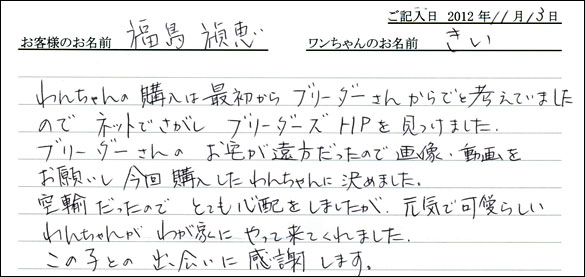 ご記入日 2012年11月13日
お客様のお名前 福島 禎恵 ワンちゃんのお名前 きい
わんちゃんの購入は最初から ブリーダーさんからでと考えていました
ので ネットでさがし ブリーダーズHPを見つけました.
ブリーダーさんの お宅が遠方だったので画像・動画を
お願いし 今回購入したわんちゃんに決めました。
空輸だったので とても心配をしましたが、元気で可愛らしい
わんちゃんが わが家に やって来てくれました。
この子との 出会いに 感謝します。